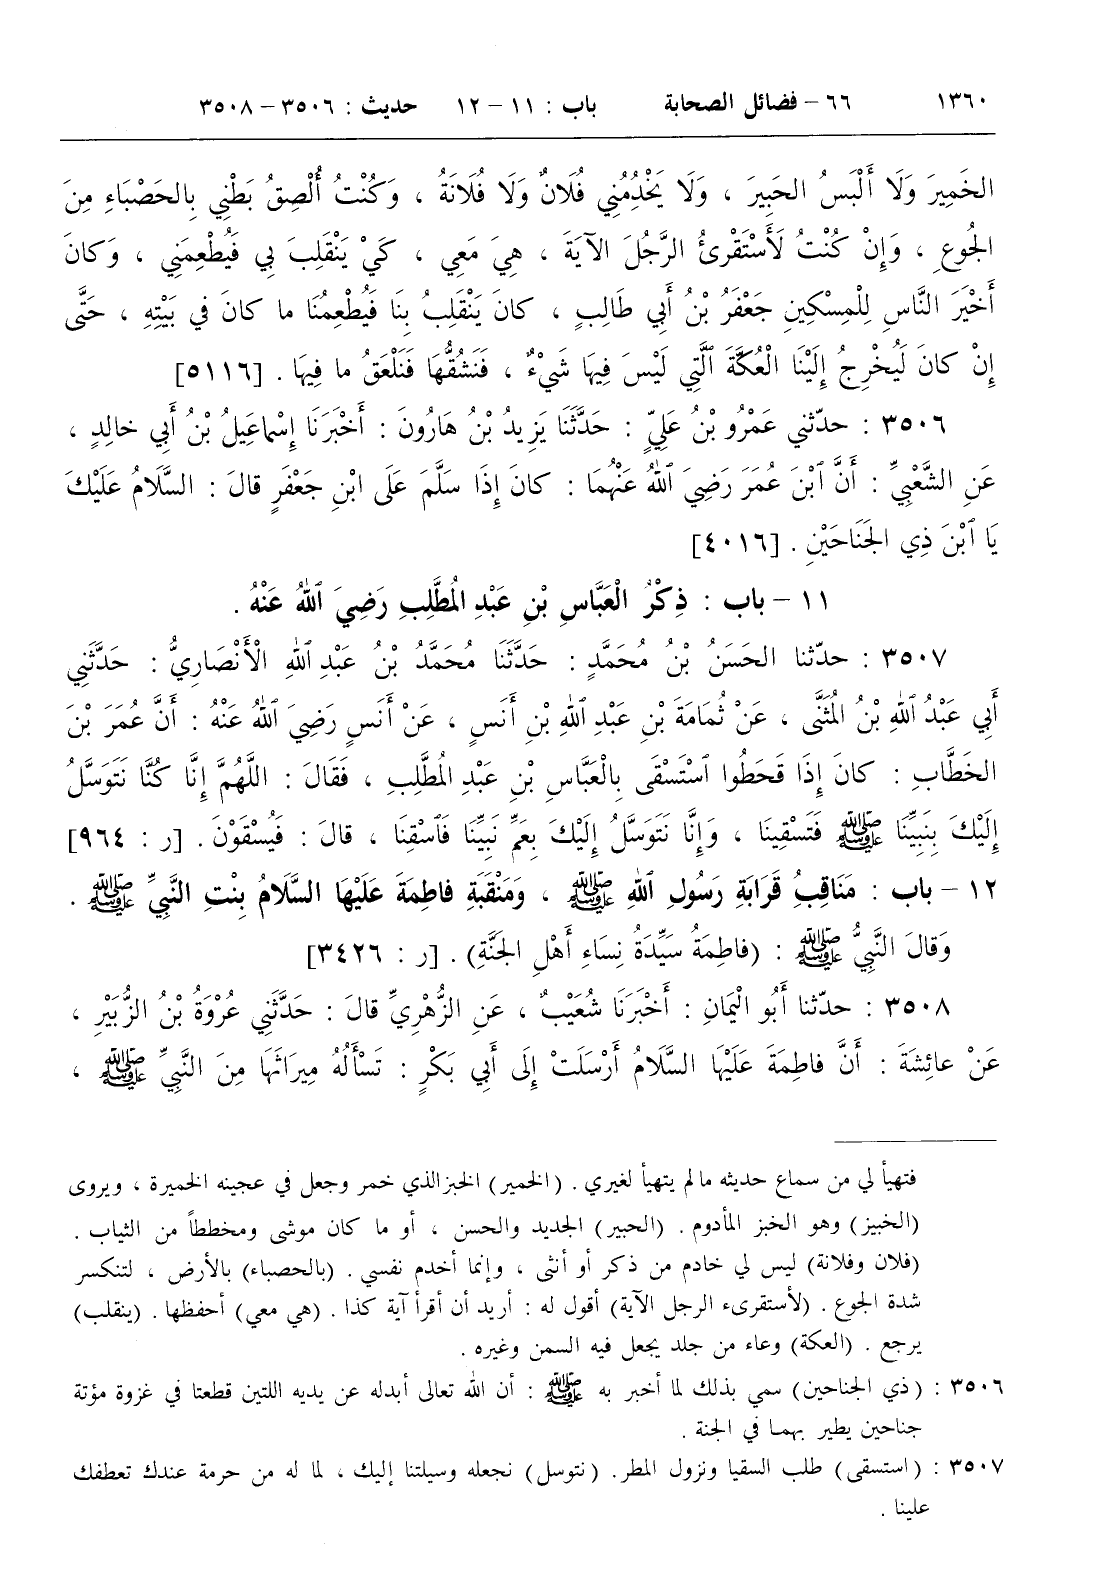 ١٣٦٠ ٦٦ – فضائل الصحابة باب : ١١ – ١٢ حديث : ٣٥٠٦ – ٣٥٠٨
الخَمِيرَ وَلَا أَلْبَسُ الحَبِيرَ ، وَلَا يَخْدُمُنِي فُلَانٌ وَلَا فُلَانَةُ ، وَكُنْتُ أُلْصِقُ بَطْنِي بِالحَصْبَاءِ مِنَ
الجُوعِ ، وَإِنْ كُنْتُ لَأَسْتَقْرِئُ الرَّجُلَ الآيَةَ ، هِيَ مَعِي ، كَيْ يَنْقَلِبَ بِي فَيُطْعِمَنِي ، وَكانَ
أَخْيَرَ النَّاسِ لِلْمِسْكِينِ جَعْفَرُ بْنُ أَبِي طَالِبٍ ، كانَ يَنْقَلِبُ بِنَا فَيُطْعِمُنَا ما كانَ في بَيْتِهِ ، حَتَّى
إِنْ كانَ لَيُخْرِجُ إِلَيْنَا الْعُكَّةَ ٱلَّتِي لَيْسَ فِيهَا شَيْءٌ ، فَنَشُقُّهَا فَنَلْعَقُ ما فِيهَا . [٥١١٦]
٣٥٠٦ : حدّثني عَمْرُو بْنُ عَلِيٍّ : حَدَّثَنَا يَزِيدُ بْنُ هَارُونَ : أَخْبَرَنَا إِسْماعِيلُ بْنُ أَبِي خالِدٍ ،
عَنِ الشَّعْبِيِّ : أَنَّ ٱبْنَ عُمَرَ رَضِيَ ٱللهُ عَنْهُمَا : كانَ إِذَا سَلَّمَ عَلَى ابْنِ جَعْفَرٍ قالَ : السَّلَامُ عَلَيْكَ
يَا ٱبْنَ ذِي الجَنَاحَيْنِ . [٤٠١٦]
١١ – باب : ذِكْرُ الْعَبَّاسِ بْنِ عَبْدِ المُطَّلِبِ رَضِيَ ٱللهُ عَنْهُ .
٣٥٠٧ : حدّثنا الحَسَنُ بْنُ مُحَمَّدٍ : حَدَّثَنَا مُحَمَّدُ بْنُ عَبْدِ ٱللهِ الْأَنْصَارِيُّ : حَدَّثَنِي
أَبِي عَبْدُ ٱللهِ بْنُ المُثَنَّى ، عَنْ ثُمَامَةَ بْنِ عَبْدِ ٱللهِ بْنِ أَنَسٍ ، عَنْ أَنَسٍ رَضِيَ ٱللهُ عَنْهُ : أَنَّ عُمَرَ بْنَ
الخَطَّابِ : كانَ إِذَا قَحَطُوا ٱسْتَسْقَى بِالْعَبَّاسِ بْنِ عَبْدِ المُطَّلِبِ ، فَقَالَ : اللَّهُمَّ إِنَّا كُنَّا نَتَوَسَّلُ
إِلَيْكَ بِنَبِيِّنَا ﷺ فَتَسْقِينَا ، وَإِنَّا نَتَوَسَّلُ إِلَيْكَ بِعَمِّ نَبِيِّنَا فَٱسْقِنَا ، قالَ : فَيُسْقَوْنَ . [ر : ٩٦٤]
١٢ – باب : مَنَاقِبُ قَرَابَةِ رَسُولِ ٱللهِ ﷺ ، وَمَنْقَبَةِ فاطِمَةَ عَلَيْهَا السَّلَامُ بِنْتِ النَّبِيِّ ﷺ .
وَقالَ النَّبِيُّ ﷺ : (فاطِمَةُ سَيِّدَةُ نِسَاءِ أَهْلِ الجَنَّةِ) . [ر : ٣٤٢٦]
٣٥٠٨ : حدّثنا أَبُو الْيَمَانِ : أَخْبَرَنَا شُعَيْبٌ ، عَنِ الزُّهْرِيِّ قالَ : حَدَّثَنِي عُرْوَةُ بْنُ الزُّبَيْرِ ،
عَنْ عائِشَةَ : أَنَّ فاطِمَةَ عَلَيْهَا السَّلَامُ أَرْسَلَتْ إِلَى أَبِي بَكْرٍ : تَسْأَلُهُ مِيرَاثَهَا مِنَ النَّبِيِّ ﷺ ،
فتهيأ لي من سماع حديثه ما لم يتهيأ لغيري . (الخمير) الخبز الذي خمر وجعل في عجينه الخميرة ، ويروى
(الخبيز) وهو الخبز المأدوم . (الحبير) الجديد والحسن ، أو ما كان موشى ومخططاً من الثياب .
(فلان وفلانة) ليس لي خادم من ذكر أو أنثى ، وإنما أخدم نفسي . (بالحصباء) بالأرض ، لتنكسر
شدة الجوع . (لأستقرىء الرجل الآية) أقول له : أريد أن أقرأ آية كذا . (هي معي) أحفظها . (ينقلب)
يرجع . (العكة) وعاء من جلد يجعل فيه السمن وغيره .
٣٥٠٦ : (ذي الجناحين) سمي بذلك لما أخبر به ﷺ : أن الله تعالى أبدله عن يديه اللتين قطعتا في غزوة مؤتة
جناحين يطير بهما في الجنة .
٣٥٠٧ : (استسقى) طلب السقيا ونزول المطر. (نتوسل) نجعله وسيلتنا إليك ، لما له من حرمة عندك تعطفك
علينا .